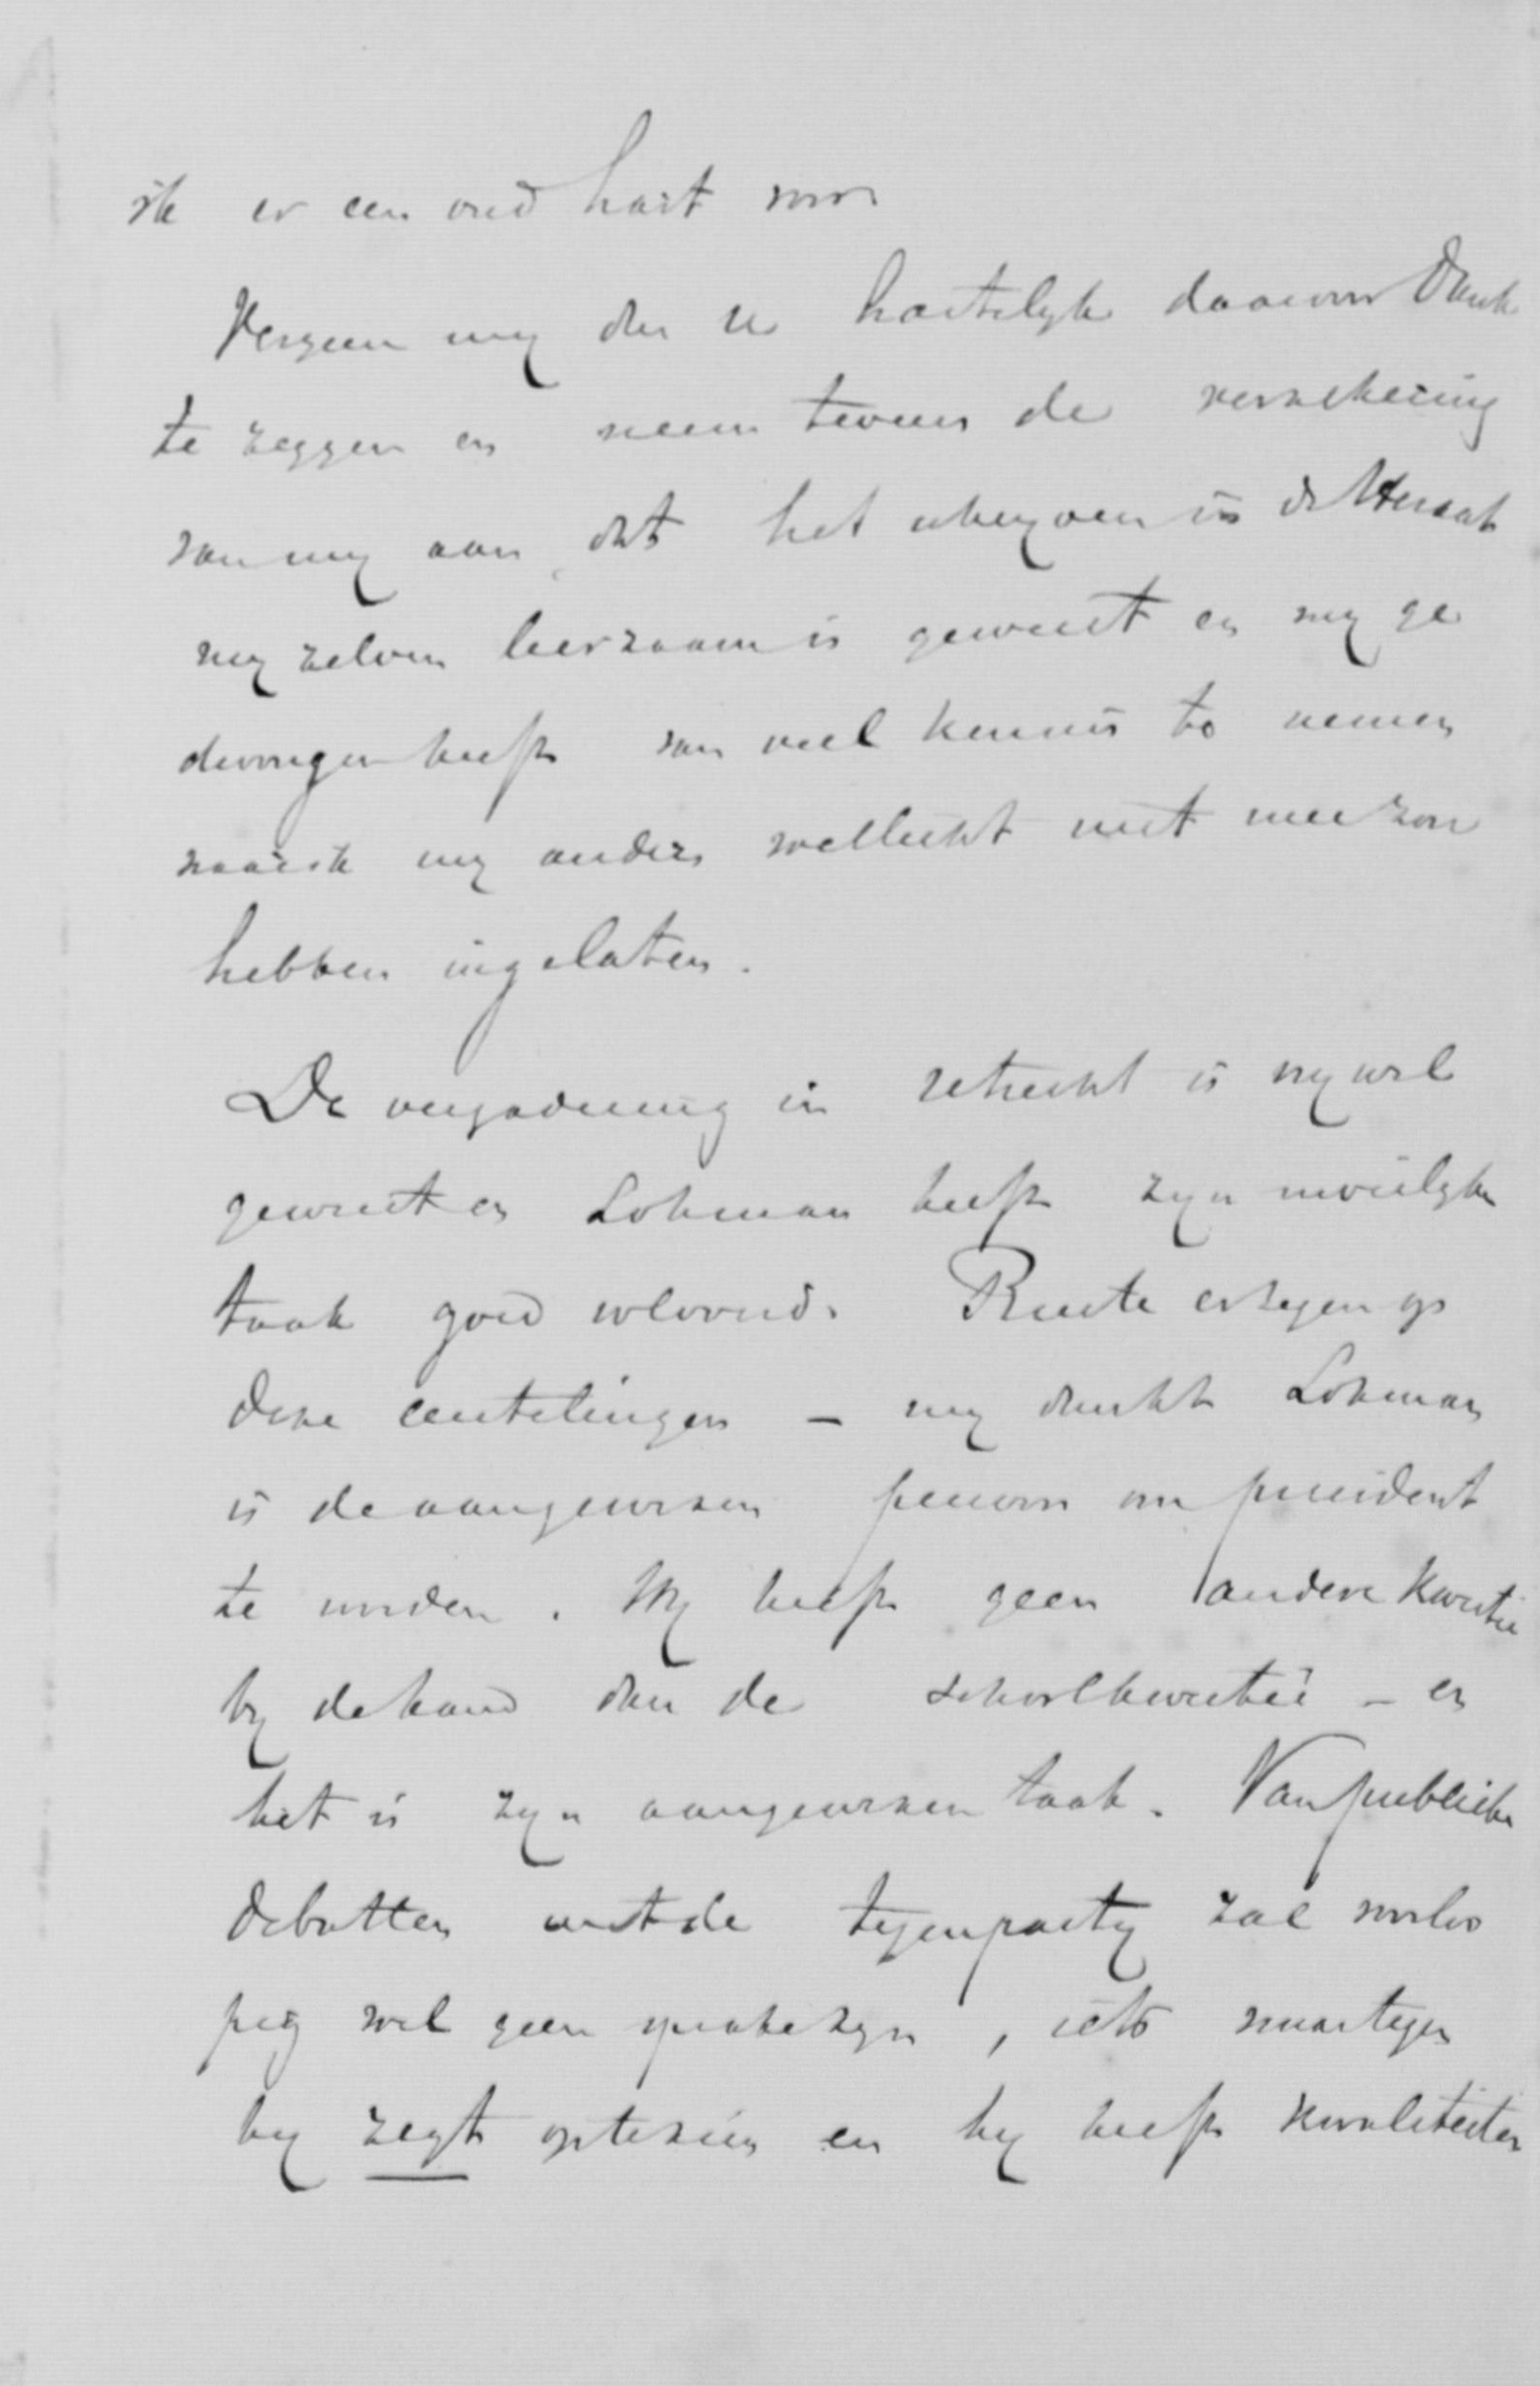 ik er een oud hart voor
Vergun my dus u hartelyk daarvoor dank
te zeggen en neem tevens de verzekering
van my aan dat het schryven in de Heraut
my zelven leerzaam is geweest en my ge
dwongen heeft van veel kennis te nemen
waarik my anders wellicht niet mee zou
hebben ingelaten.
De vergadering in Utrecht is my wel
geweest en Lohman heeft zyn moeilyke
taak goed volvoerd. Ruste er zegen op
deze eentelingen – my dunkt Lohman
is de aangewezen persoon om president
te worden. Hy heeft geen andere kwestie
by de hand dan de schoolkwestie – en
het is zyn aangewezen taak. Van publieke
debatten met de tegenparty zal voorloo
pig wel geen sprake zyn, iets waartegen
hy zegt optezien en hy heeft kwaliteiten